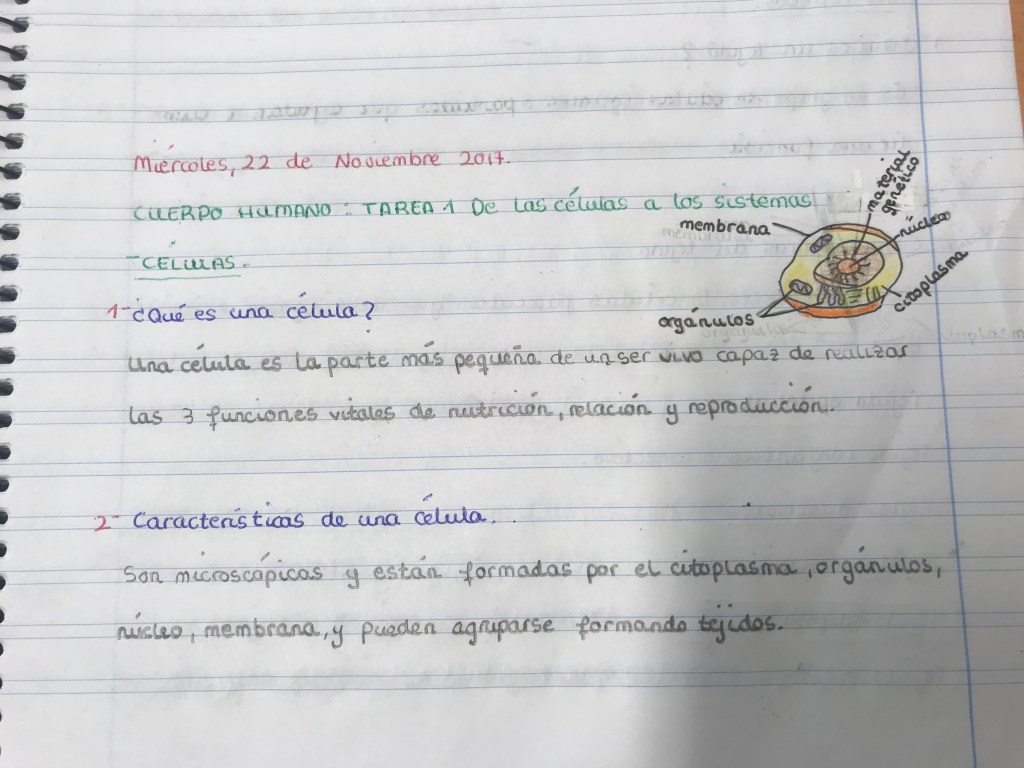 Miércoles, 22 de Noviembre 2017.
CUERPO HUMANO: TAREA 1 De las células a los sistemas
- CÉLULAS.
material
genético
membrana
núcleo
citoplasma
orgánulos
1- ¿Qué es una célula?
Una célula es la parte más pequeña de un ser vivo capaz de realizar
las 3 funciones vitales de nutrición, relación y reproducción.
2- Características de una célula.
Son microscópicos y están formadas por el citoplasma, orgánulos,
núcleo, membrana, y pueden agruparse formando tejidos.